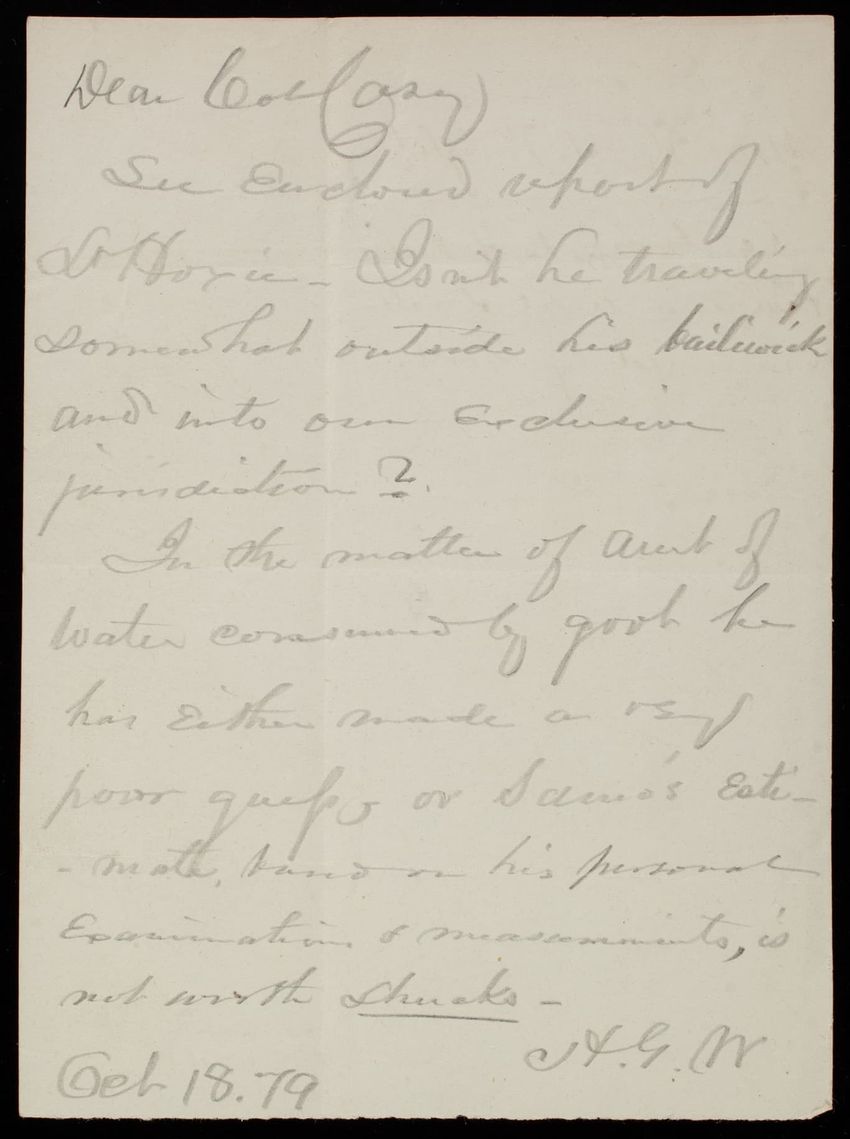 Dear Col Casey
See Enclosed report of
Lt Hoxie - Isn't he traveling
somewhat outside his bailiwick
and into our Exclusive
jurisdiction ?
In the matter of amt of
water consumed by govt he
has Either made a very
poor guess or Samo's Esti-
- mate, based on his personal
Examinations & measurements, is
not worth shucks -
A. G. W
Oct 18. 79